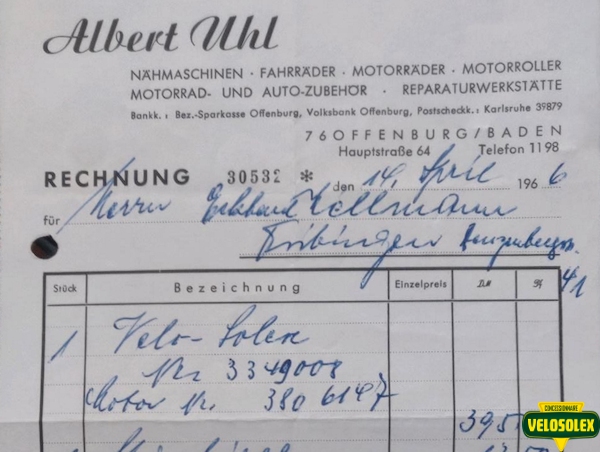 Albert Uhl
NÄHMASCHINEN · FAHRRÄDER · MOTORRÄDER · MOTORROLLER
MOTORRAD- UND AUTO-ZUBEHÖR · REPARATURWERKSTÄTTE
Bankk.: Bez.-Sparkasse Offenburg, Volksbank Offenburg, Postscheckk.: Karlsruhe 39879
76 OFFENBURG/BADEN
Hauptstraße 64 Telefon 1198
RECHNUNG 30532 * den 14. April 1966
für Herrn Eckhard Kellmann
41
Stück Bezeichnung Einzelpreis DM Pf
1 Velo-Solex
Nr. 3349008
Motor Nr. 380 6147
395
1
CONCESSIONNAIRE
VELOSOLEX